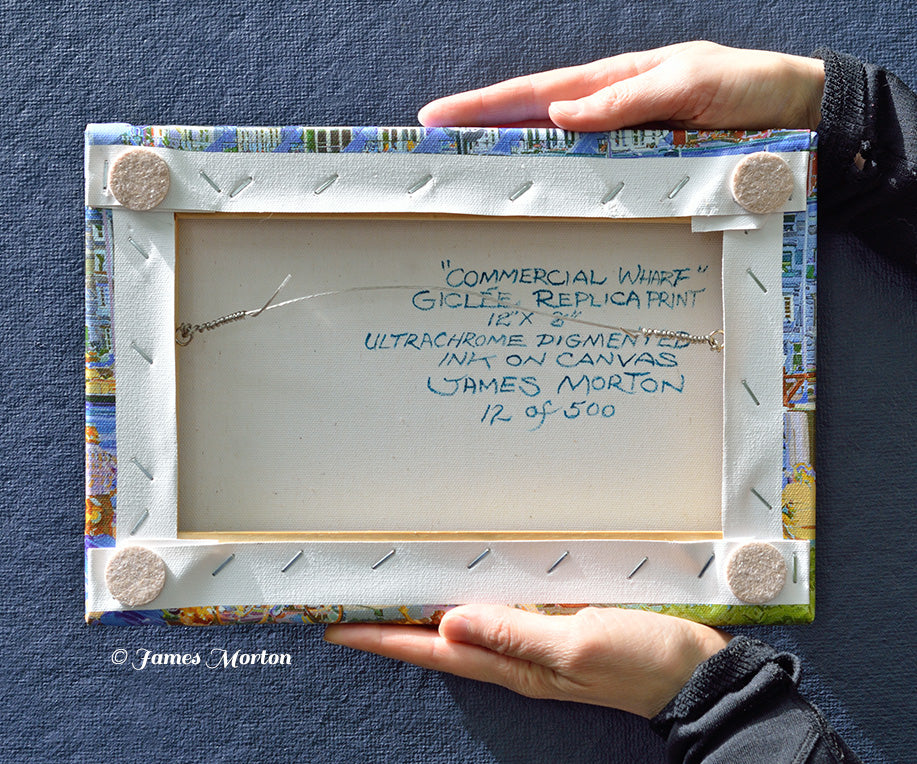 "COMMERCIAL WHARF"
GICLÉE REPLICA PRINT
12" X 8"
ULTRACHROME PIGMENTED
INK ON CANVAS
JAMES MORTON
12 of 500
© James Morton